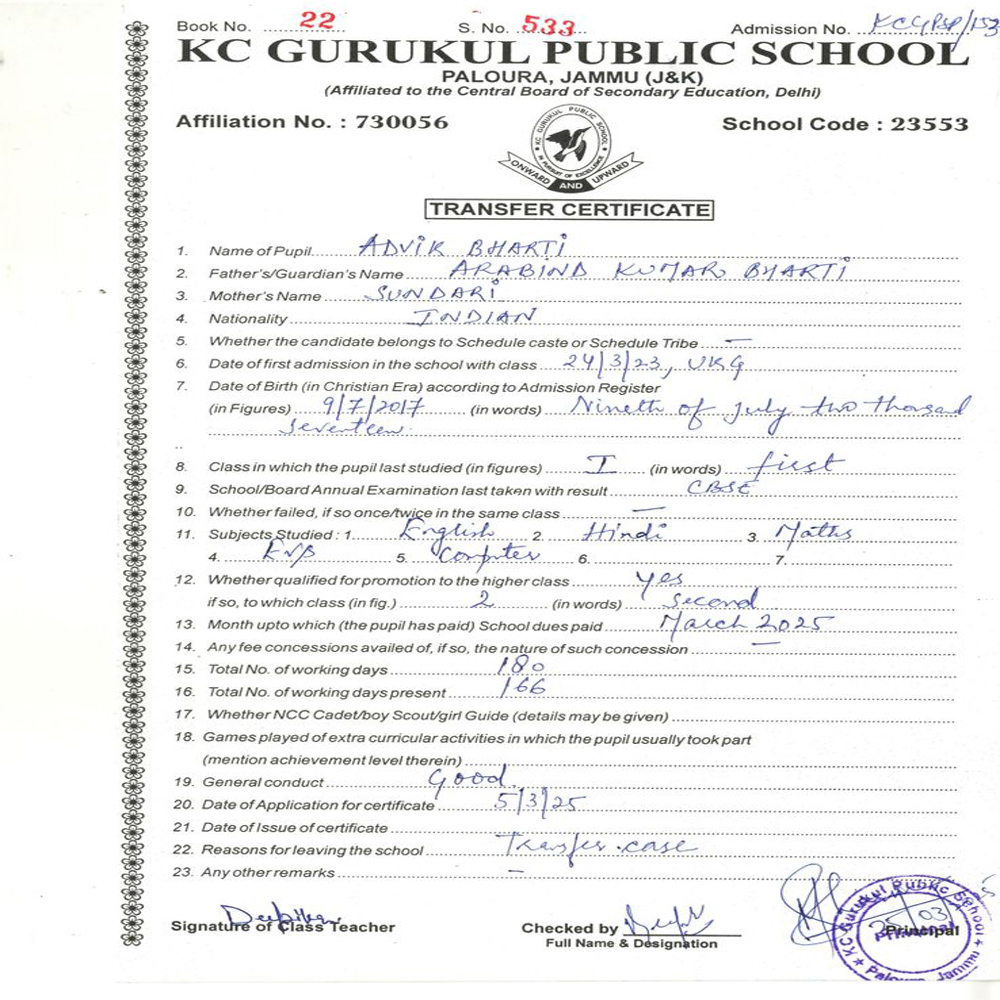 Book No. 22 S. No. 533 Admission No. KCGPSP/153
KC GURUKUL PUBLIC SCHOOL
PALOURA, JAMMU (J&K)
(Affiliated to the Central Board of Secondary Education, Delhi)
Affiliation No. : 730056 School Code : 23553
KC GURUKUL PUBLIC SCHOOL
IN PURSUIT OF EXCELLENCE
ONWARD AND UPWARD
TRANSFER CERTIFICATE
1. Name of Pupil ADVIK BHARTI
2. Father's/Guardian's Name ARABIND KUMAR BHARTI
3. Mother's Name SUNDARI
4. Nationality INDIAN
5. Whether the candidate belongs to Schedule caste or Schedule Tribe —
6. Date of first admission in the school with class 24/3/23, UKG
7. Date of Birth (in Christian Era) according to Admission Register
(in Figures) 9/7/2017 (in words) Nineth of July two thousad
seventeen.
8. Class in which the pupil last studied (in figures) I (in words) first
9. School/Board Annual Examination last taken with result CBSE
10. Whether failed, if so once/twice in the same class —
11. Subjects Studied : 1. English 2. Hindi 3. Maths
4. EVS 5. Computer 6. 7.
12. Whether qualified for promotion to the higher class yes
if so, to which class (in fig.) 2 (in words) Second
13. Month upto which (the pupil has paid) School dues paid March 2025
14. Any fee concessions availed of, if so, the nature of such concession —
15. Total No. of working days 180
16. Total No. of working days present 166
17. Whether NCC Cadet/boy Scout/girl Guide (details may be given)
18. Games played of extra curricular activities in which the pupil usually took part
(mention achievement level therein)
19. General conduct Good.
20. Date of Application for certificate 5/3/25
21. Date of Issue of certificate
22. Reasons for leaving the school Transfer case
23. Any other remarks —
Deepika
Signature of Class Teacher Checked by Principal
Full Name & Designation
KC Gurukul Public School
25/03
Principal
Paloura, Jammu